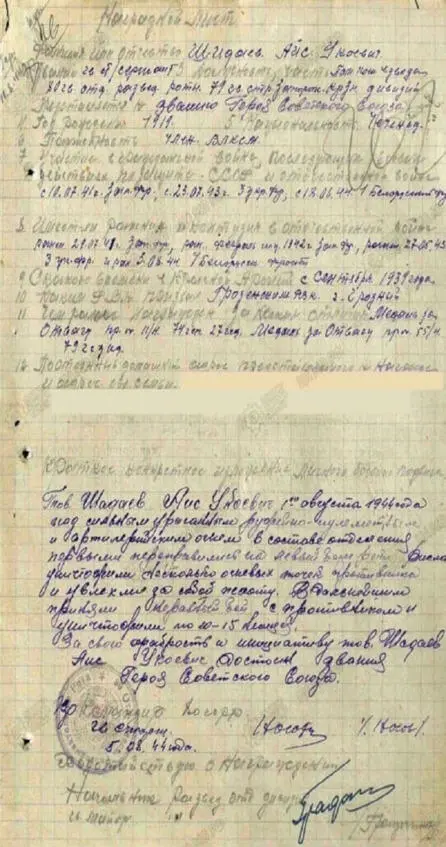 Наградной Лист
Фамилия имя отчество Шидаев Аис Укоевич
Звание гв. ст/сержант 3 должность, часть Пом. ком. взвода
80 гв. отд. развед. роты. 79 гв. стр. Запорож. кр/зн. дивизий
Представляется к званию Героя Советского Союза
4 Год рождения 1919. 5 Национальность Чечен.
6 Партийность Член ВЛКСМ.
7 Участие в гражданской войне, последующих боевых
действиях по защите СССР и отечественной войне
с 10.07.41г. Зап.фр., с 23.07.43г. 3 Укр. фр, с 18.06.44 1 Белорусский фр
8 Имеет ли ранения и контузии в отечественной войне
ранен 29.07.41. Зап.фр, ран. февраль 1942г. Зап. фр, ранен 27.05.43
3 Укр.фр. и ран 3.08.44 1 Белорусск фронт
9 С какого времени в Красной Армии с сентября 1939 года
10 Каким РВК призван Грозненским РВК г. Грозный
11 Чем ранее награжден за какие отличия Медаль за
Отвагу пр. 79 27 гсд. Медаль за Отвагу пр. 55/н
79 гсд.
12 Постоянный домашний адрес представляемого к награде
и адрес его семьи.
Краткое конкретное изложение личного боевого подвига
Тов. Шадаев Аис Укоевич 1го августа 1944 года
под сильным ураганным ружейно-пулеметным
и артиллерийским огнем в составе отделения
первыми переправились на левый берег реки Висла
уничтожили несколько огневых точек противника
и увлекли за собой роту. В дальнейшем
приняли неравный бой с противником и
уничтожили по 10-15 немцев.
За свою храбрость и инициативу тов. Шадаев
Аис Укоевич достоин звания
Героя Советского Союза.
Командир
гв 
5.08.44 года.
Ходатайствую о награждении
Начальник развед отд
гв. майор